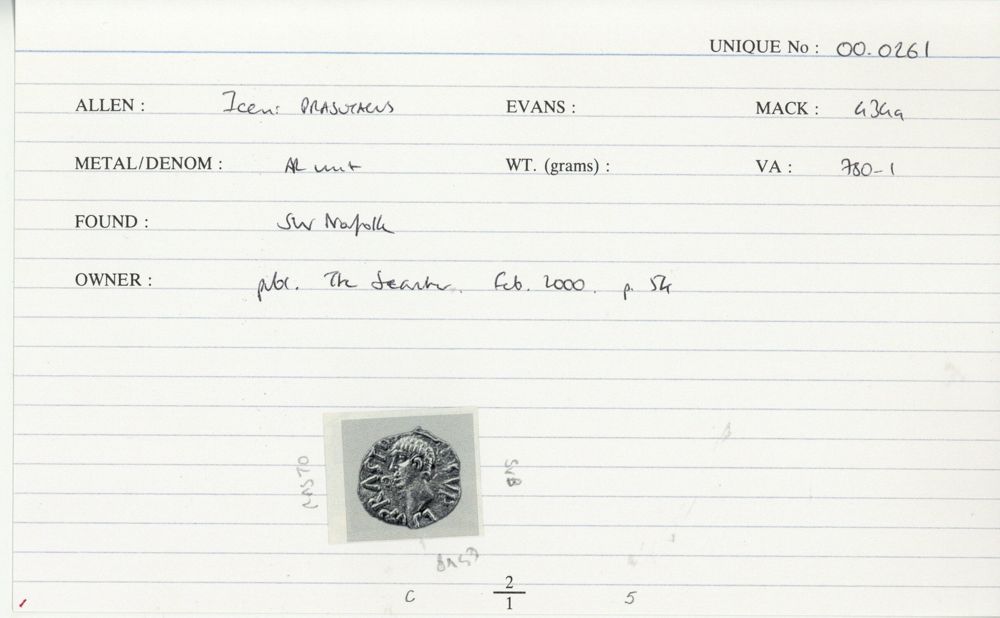 UNIQUE No : 00.0261
ALLEN : Iceni PRASUTAGUS EVANS : MACK : 434a
METAL/DENOM : AR unit WT. (grams) : VA : 780-1
FOUND : SW Norfolk
OWNER : publ. The Searcher. Feb. 2000. p. 54
SVB
C 2/1 5